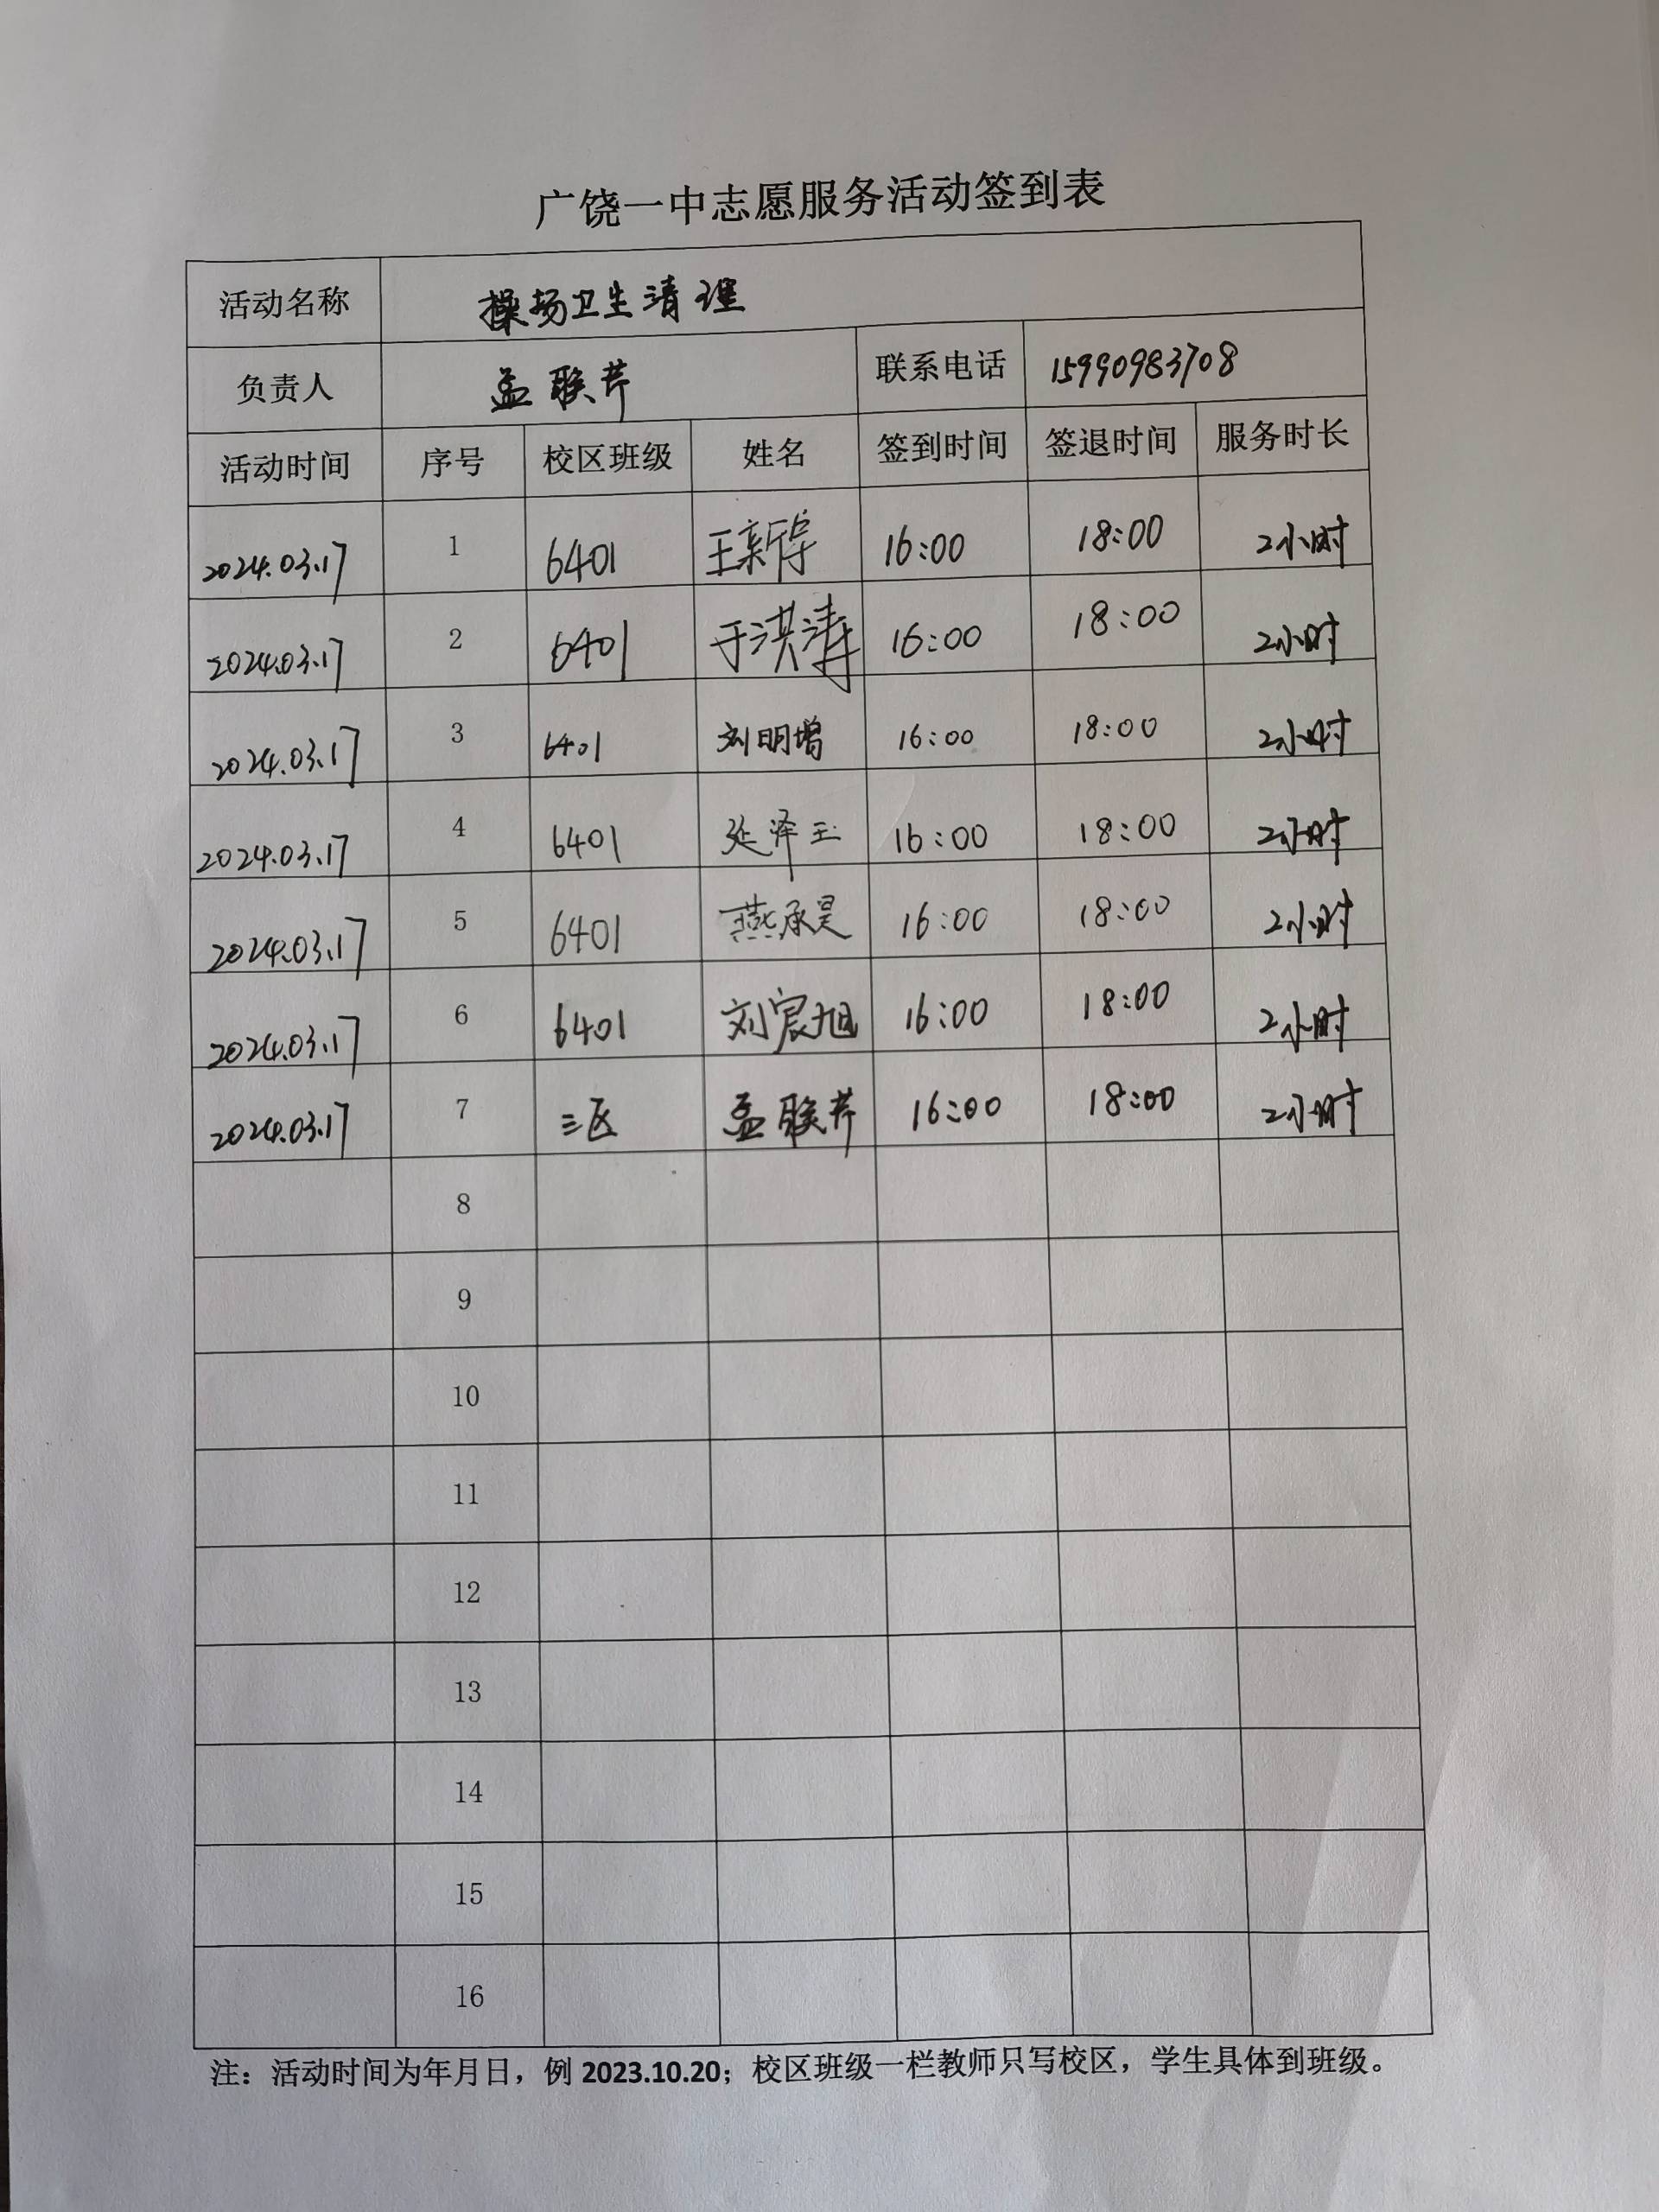 广饶一中志愿服务活动签到表
活动名称 操场卫生清理
负责人 孟联芹 联系电话 15990983708
活动时间 序号 校区班级 姓名 签到时间 签退时间 服务时长
2024.03.17 1 6401 王新宇 16:00 18:00 2小时
2024.03.17 2 6401 于洪涛 16:00 18:00 2小时
2024.03.17 3 6401 刘明增 16:00 18:00 2小时
2024.03.17 4 6401 延泽玉 16:00 18:00 2小时
2024.03.17 5 6401 燕承昊 16:00 18:00 2小时
2024.03.17 6 6401 刘宸旭 16:00 18:00 2小时
2024.03.17 7 三区 孟联芹 16:00 18:00 2小时
8
9
10
11
12
13
14
15
16
注：活动时间为年月日，例 2023.10.20；校区班级一栏教师只写校区，学生具体到班级。